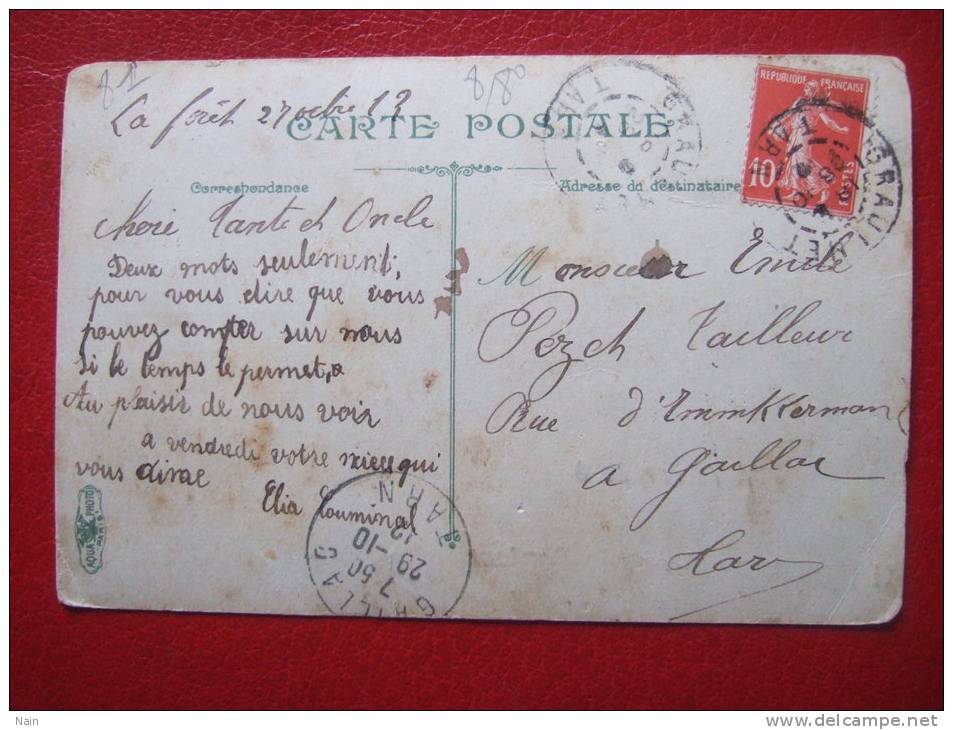 La forêt 27 octbre 13
8/80
CARTE POSTALE
Correspondance
Adresse du destinataire
RÉPUBLIQUE FRANÇAISE
10
POSTES
GRAULHET
TARN
Chere Tante et Oncle
Deux mots seulement,
pour vous dire que vous
pouvez compter sur nous
si le temps le permet,
Au plaisir de nous voir
a vendredi votre niece qui
vous aime
Elia Couminal
Monsieur Emile
Pezet Tailleur
Rue d'Imm
a Gaillac
Tarn
AQUA PHOTO
PARIS
GAILLAC
7 50
29 -10
TARN
Nain
www.delcampe.net